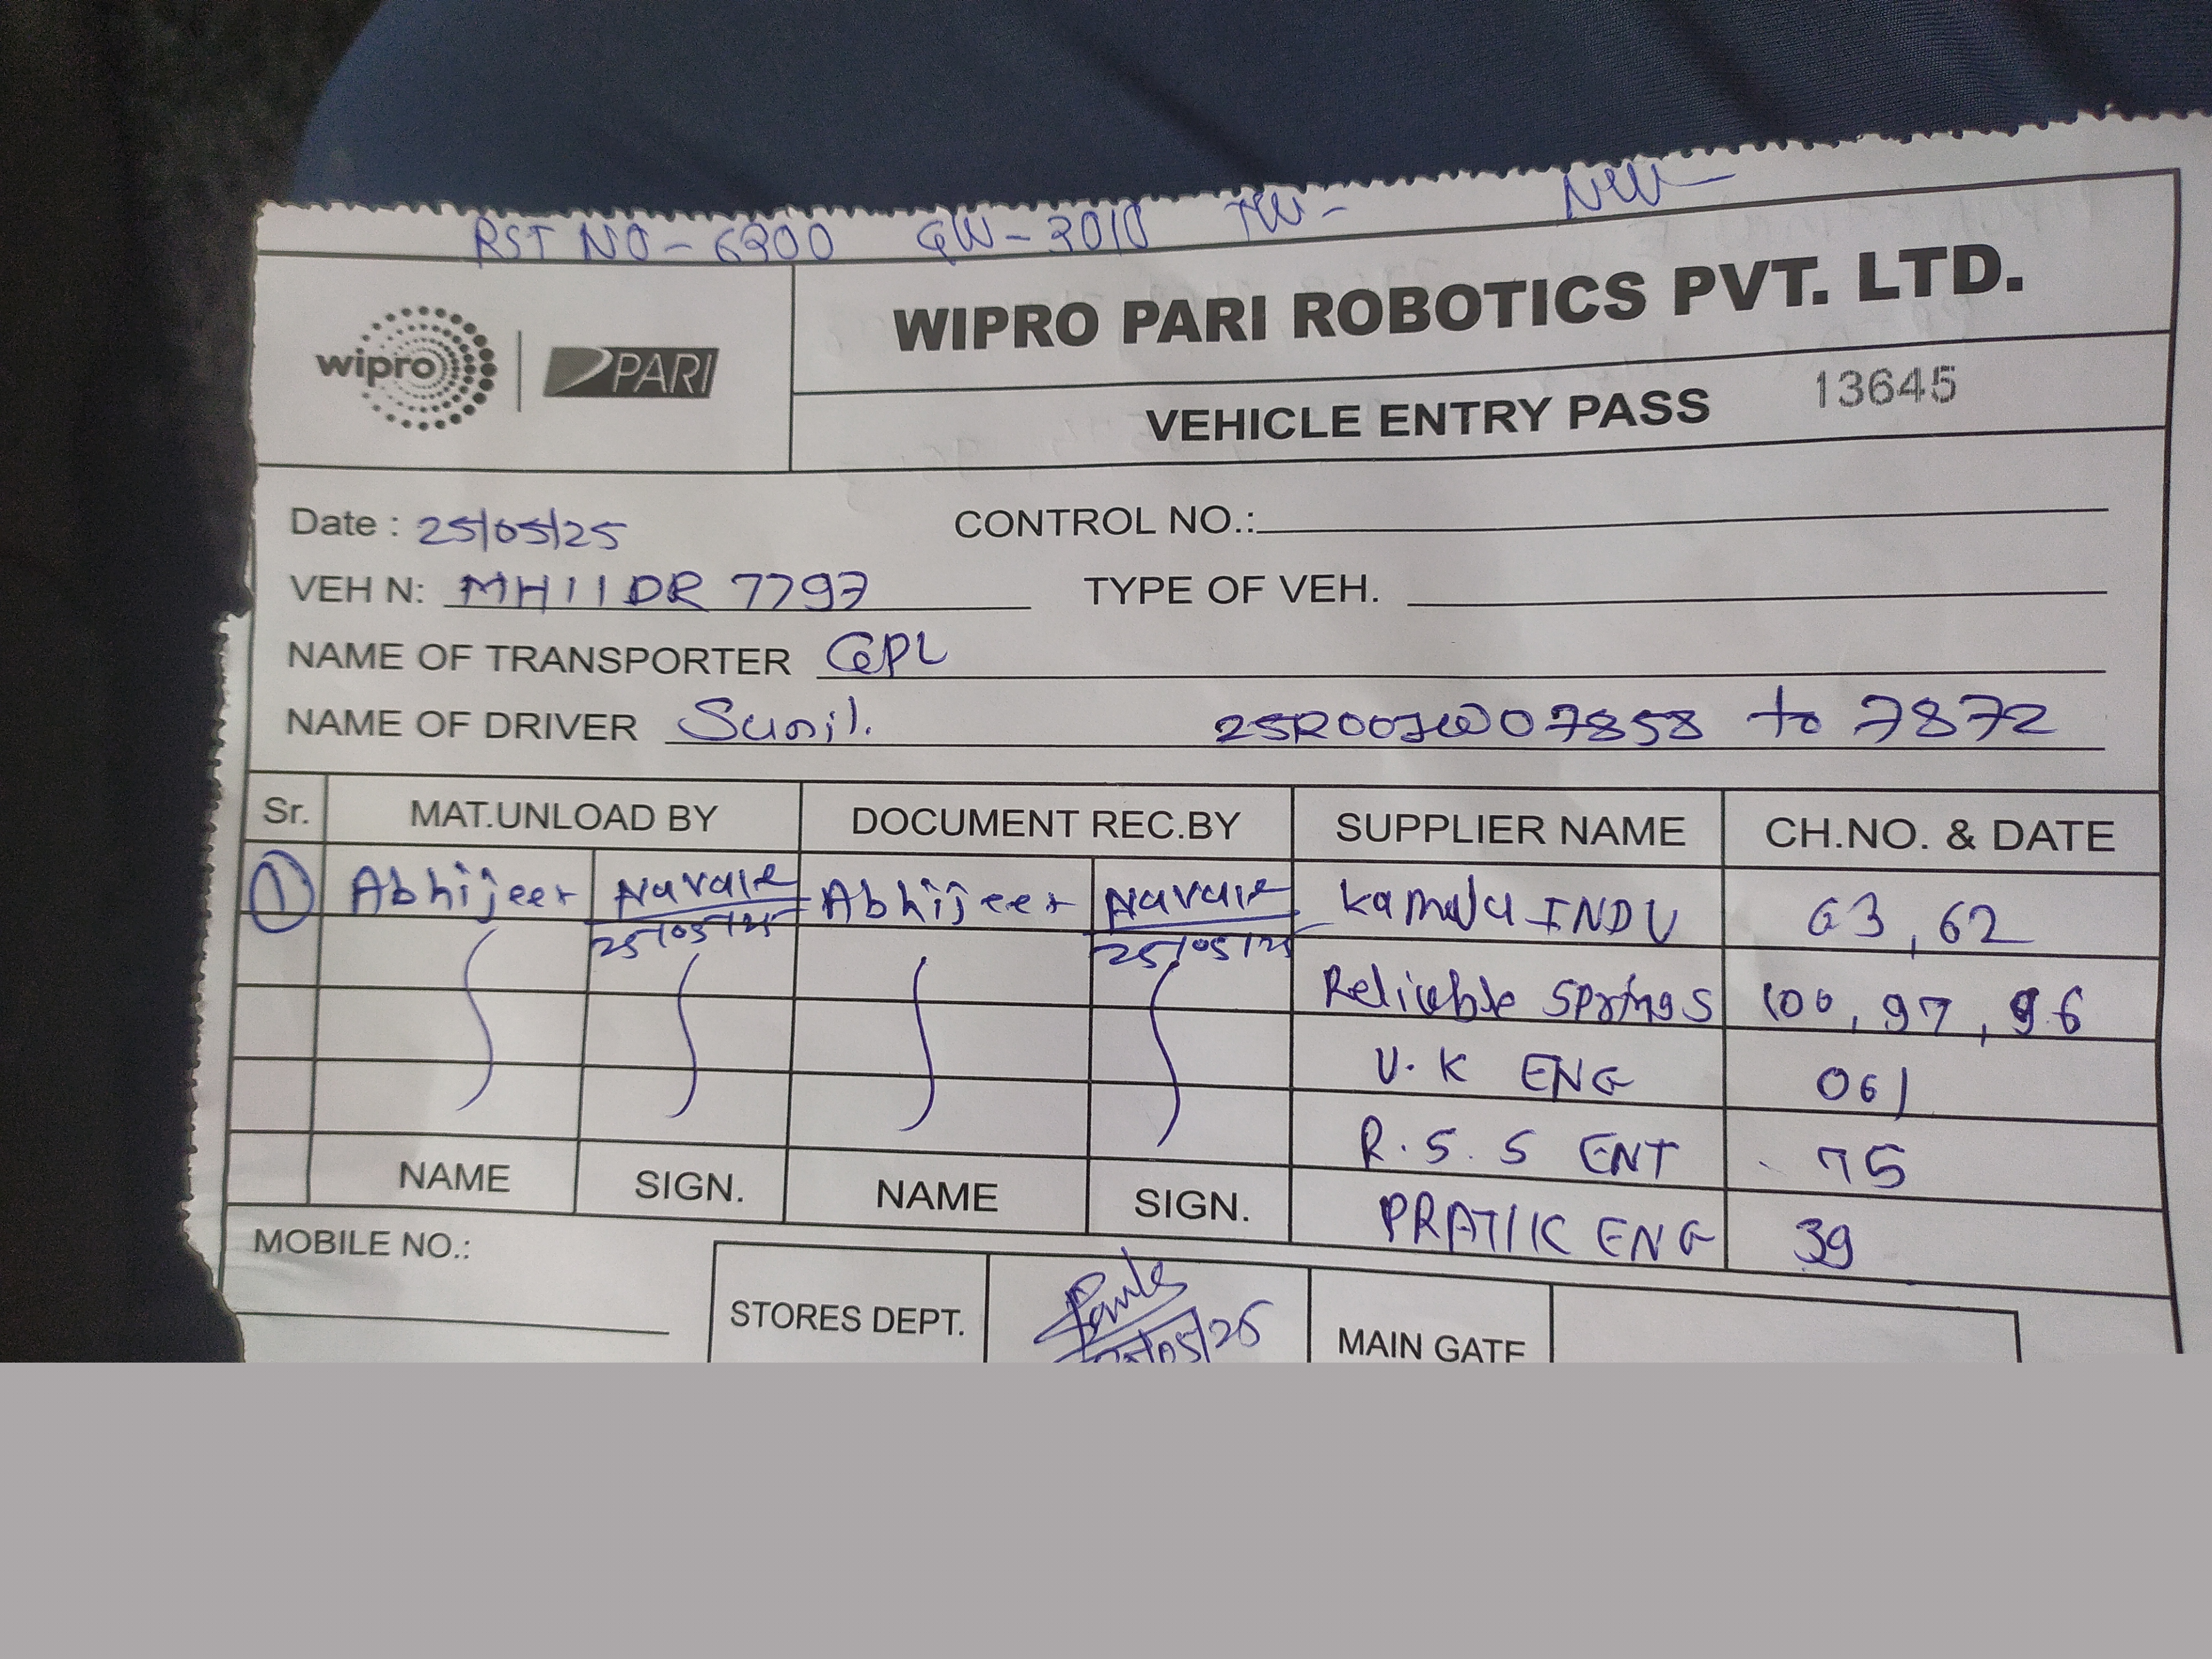 RST NO - 6900 GW - 3010 TW - NW -
wipro PARI
WIPRO PARI ROBOTICS PVT. LTD.
VEHICLE ENTRY PASS 13645
Date : 25/05/25 CONTROL NO.:
VEH N: MH11DR 7797 TYPE OF VEH.
NAME OF TRANSPORTER GPL
NAME OF DRIVER Sunil. 25R00JW07858 to 7872
Sr. MAT.UNLOAD BY DOCUMENT REC.BY SUPPLIER NAME CH.NO. & DATE
1 Abhijeet Navale Abhijeet Navale Kamala INDU 63, 62
25/05/25 25/05/25
Reliable Springs 100, 97, 96
V.K ENG 061
R.S.S ENT 75
PRATIK ENG 39
NAME SIGN. NAME SIGN.
MOBILE NO.:
STORES DEPT. MAIN GATE